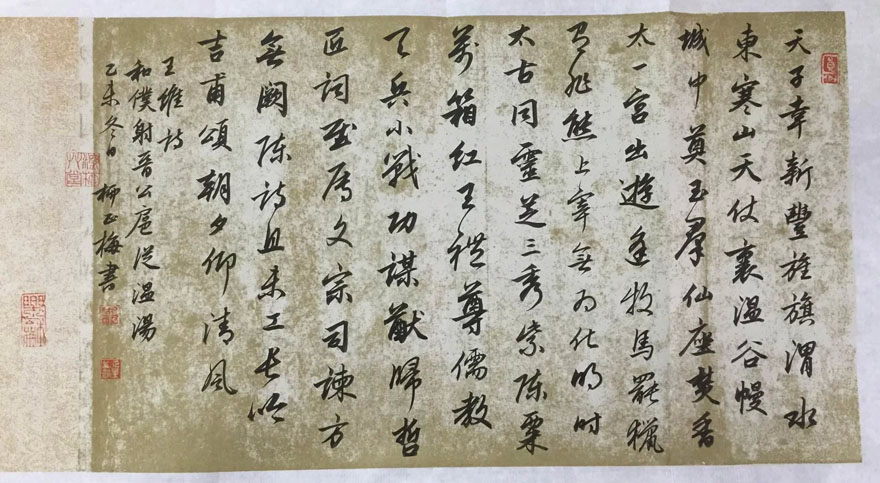 天子幸新豐旌旗渭水
東寒山天仗裏温谷幔
城中奠玉羣仙座焚香
太一宮出遊逢牧馬罷獵
非熊上宰無為化明時
太古同靈芝三秀紫陳粟
萬箱紅王禮尊儒教
天兵小戰功謀猷歸哲
匠詞賦屬文宗司諫方
無闕陳詩且未工長吟
吉甫頌朝夕仰清風
王維詩
和僕射晉公扈從温湯
乙未冬日 柳正梅書